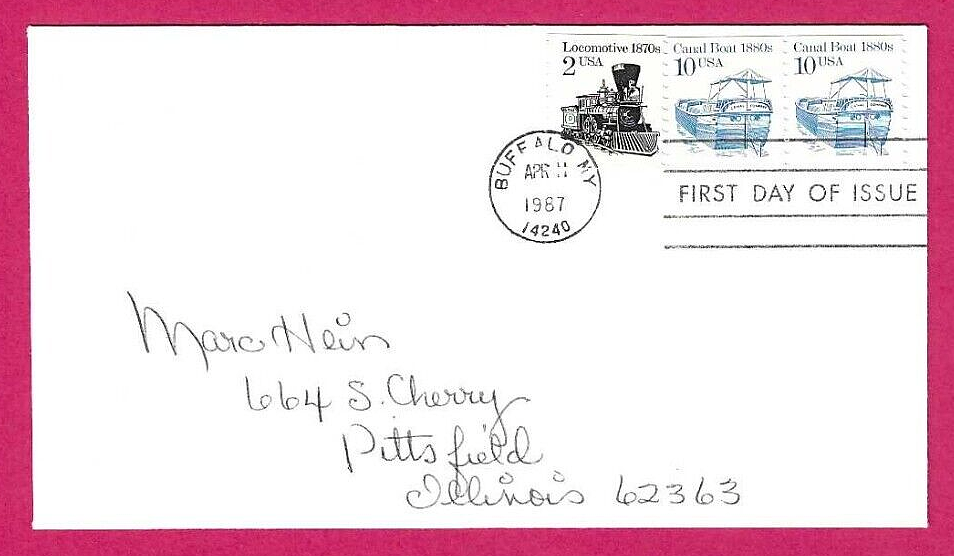 Locomotive 1870s
2 USA
Canal Boat 1880s
10 USA
Canal Boat 1880s
10 USA
BUFFALO NY
APR 11
1987
14240
FIRST DAY OF ISSUE
Marc Hein
664 S. Cherry
Pittsfield
Illinois 62363